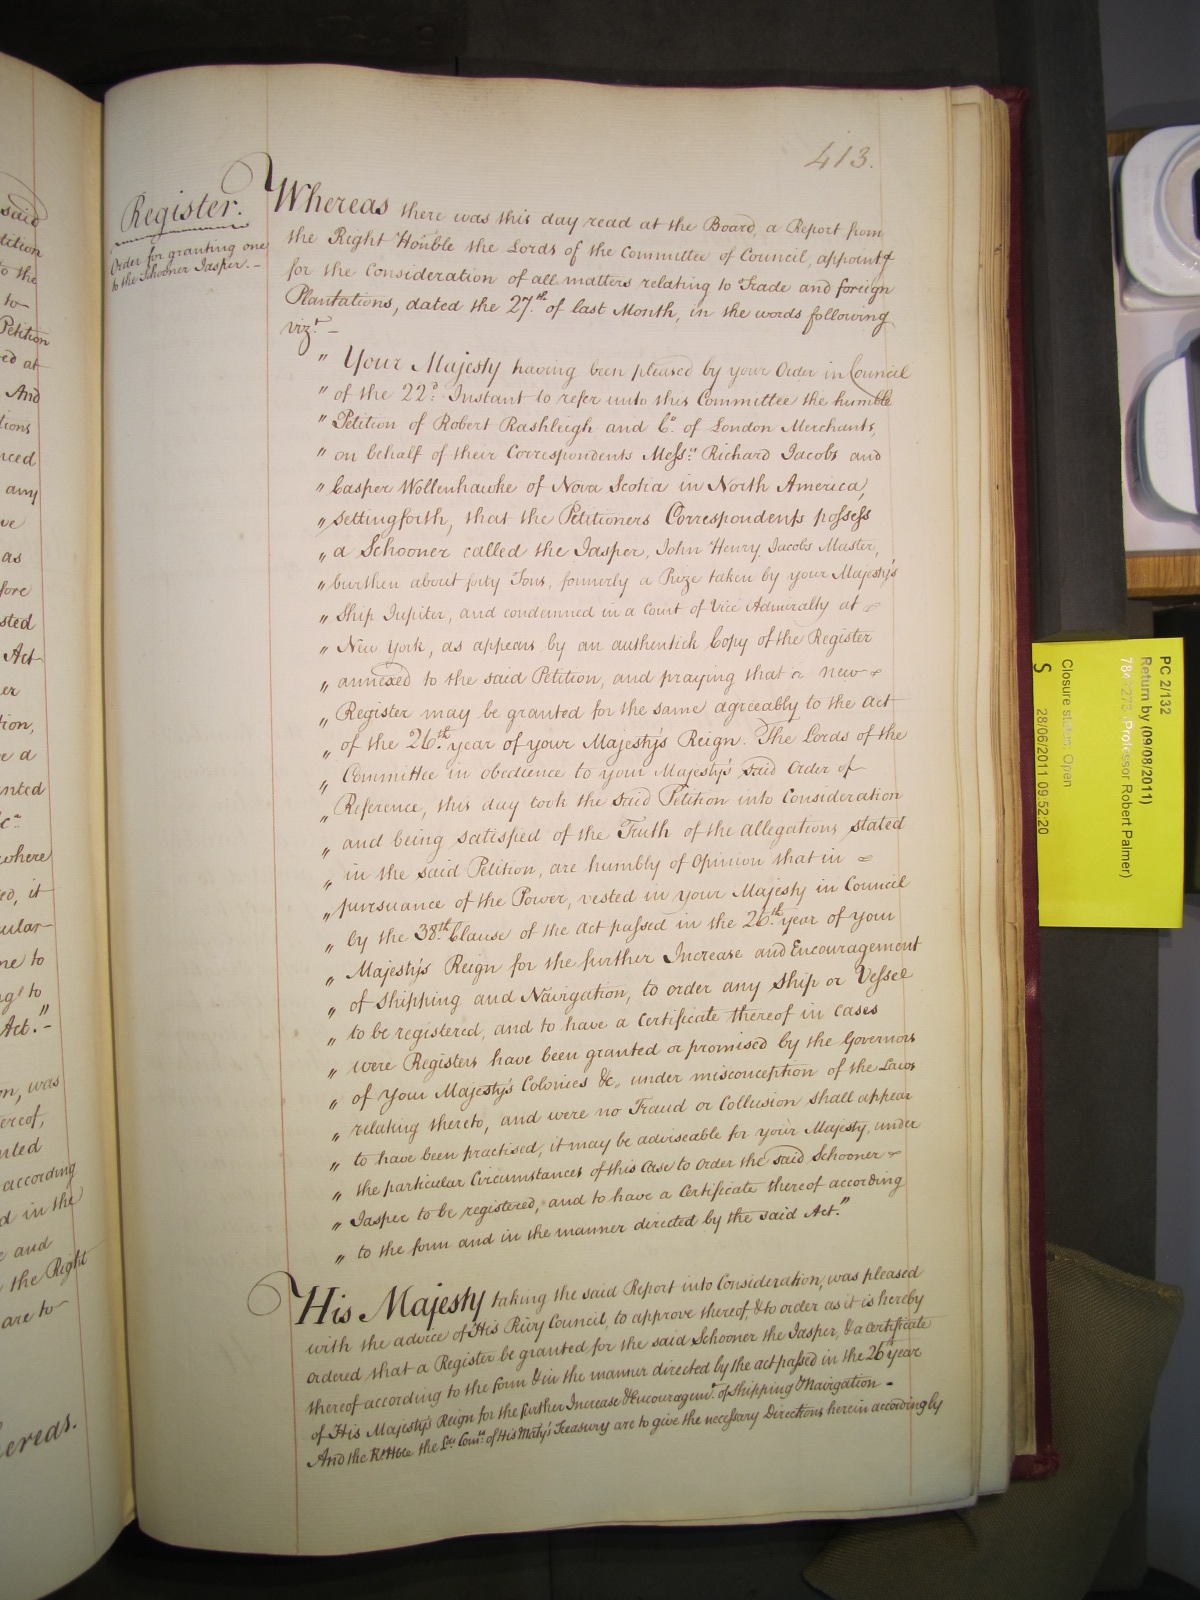 413.
Register.
Order for granting one
to the Schooner Jasper.—
Whereas there was this day read at the Board, a Report from
the Right Honble the Lords of the Committee of Council, appointd
for the Consideration of all matters relating to Trade and foreign
Plantations, dated the 27.th of last Month, in the words following
vizt. —
" Your Majesty having been pleased by your Order in Council
" of the 22d. Instant to refer unto this Committee the humble
" Petition of Robert Rashleigh and Co. of London Merchants,
" on behalf of their Correspondents Messrs. Richard Jacobs and
" Casper Wollenhawke of Nova Scotia in North America,
" setting forth, that the Petitioners Correspondents possess
" a Schooner called the Jasper, John Henry Jacobs Master,
" burthen about forty Tons, formerly a Prize taken by your Majesty's
" Ship Jupiter, and condemned in a Court of Vice Admiralty at
" New York, as appears by an authentick Copy of the Register
" annexed to the said Petition, and praying that a new
" Register may be granted for the same agreeably to the Act
" of the 26.th year of your Majesty's Reign. The Lords of the
" Committee in obedience to your Majesty's said Order of
" Reference, this day took the said Petition into Consideration
" and being satisfied of the Truth of the allegations stated
" in the said Petition, are humbly of Opinion that in
" pursuance of the Power, vested in your Majesty in Council
" by the 38.th Clause of the Act passed in the 26.th year of your
" Majesty's Reign for the further Increase and Encouragement
" of Shipping and Navigation, to order any Ship or Vessel
" to be registered, and to have a Certificate thereof in cases
" were Registers have been granted or promised by the Governors
" of your Majesty's Colonies &c, under misconception of the Laws
" relating thereto, and were no Fraud or Collusion shall appear
" to have been practised, it may be adviseable for your Majesty, under
" the particular Circumstances of this Case to order the said Schooner
" Jasper to be registered, and to have a Certificate thereof according
" to the form and in the manner directed by the said Act."
His Majesty taking the said Report into Consideration, was pleased
with the advice of His Privy Council, to approve thereof, & to order as it is hereby
ordered that a Register be granted for the said Schooner the Jasper, & a Certificate
thereof according to the form & in the manner directed by the act passed in the 26th year
of His Majesty's Reign for the further Increase & Encouragemt. of Shipping & Navigation -
And the Rt. Hble the Lds Comrs. of His Maty's Treasury are to give the necessary Directions herein accordingly
PC 2/132
Return by (09/08/2011)
Professor Robert Palmer)
Closure status: Open
S
28/06/2011 09:52:20
said
to the
to
Petition
And
any
as
Act
a
where
it
to
to
Act."-
was
according
in the
and
the Right
are to